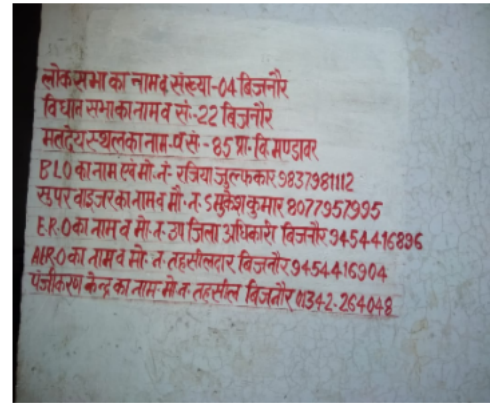 लोकसभा का नाम व संख्या-04 बिजनौर
विधान सभा का नाम व सं.-22 बिजनौर
मतदेय स्थल का नाम-व सं.-85 प्रा. वि. मण्डावर
BLO का नाम एवं मो. नं. रजिया जुल्फकार 9837981112
सुपरवाइजर का नाम व मो. न. मुकेश कुमार 8077957995
E.R.O का नाम व मो. न. उप जिला अधिकारी बिजनौर 9454416896
AER.O का नाम व मो. न. तहसीलदार बिजनौर 9454416904
पंजीकरण केन्द्र का नाम-मो. न. तहसील बिजनौर 01342-264048